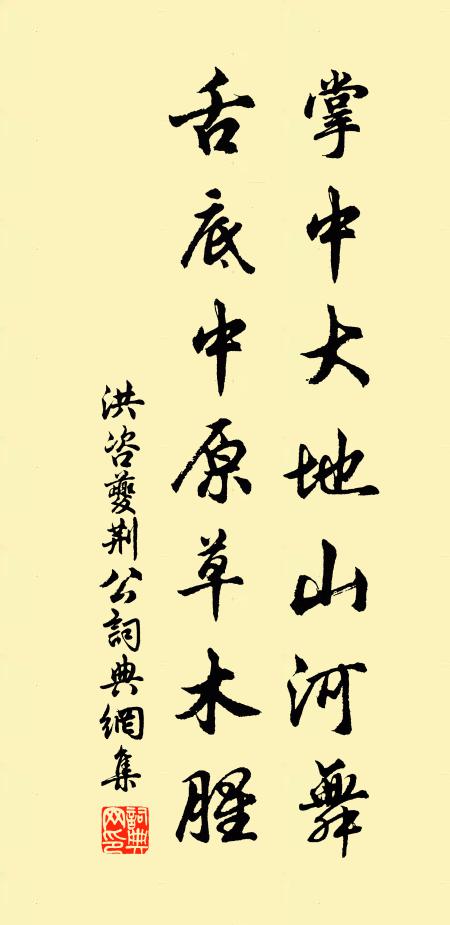 掌中大地山河舞
舌底中原草木腥
洪咨夔荆公詞典網集
詞典網印